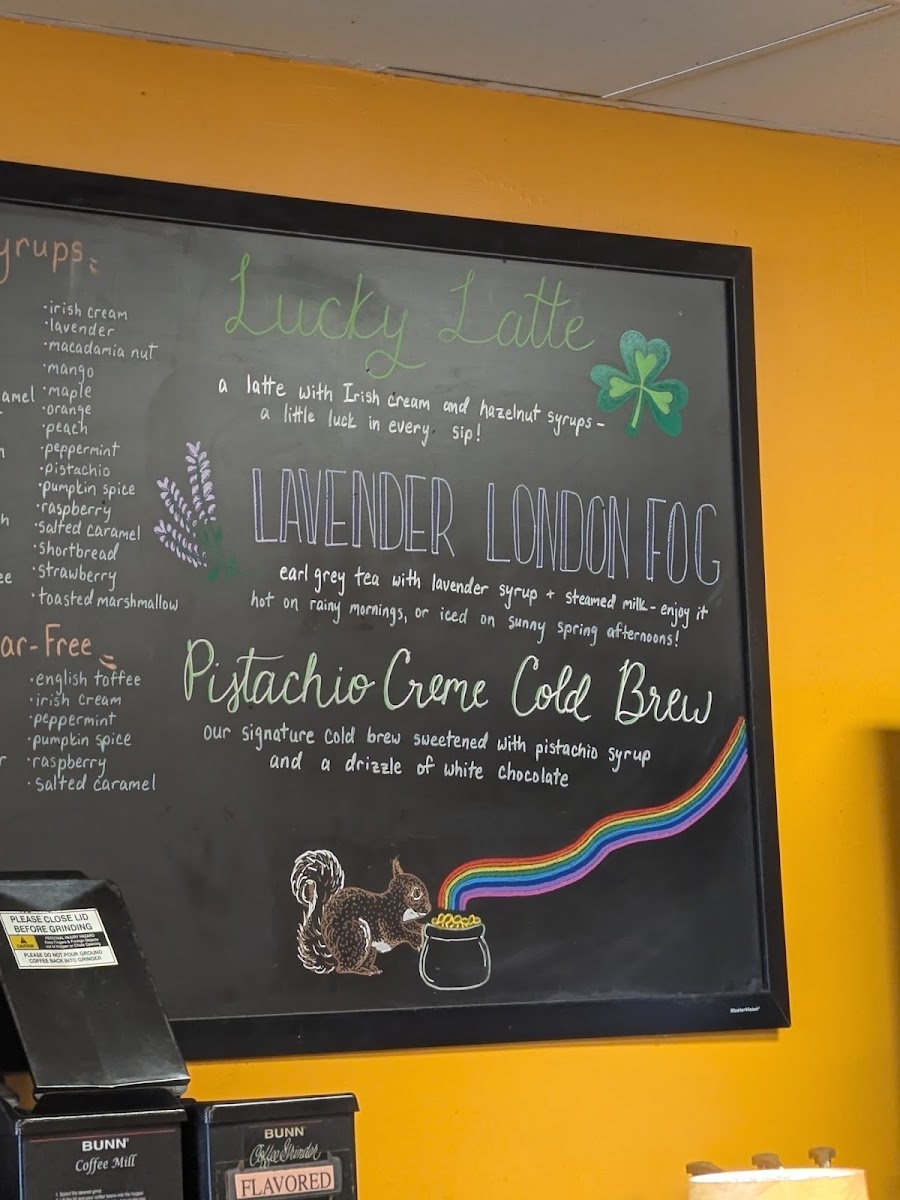 yrups:
·irish cream
·lavender
·macadamia nut
·mango
amel ·maple
·orange
·peach
·peppermint
·pistachio
·pumpkin spice
·raspberry
·salted caramel
·shortbread
·strawberry
·toasted marshmallow
ar-Free
·english toffee
·irish cream
·peppermint
·pumpkin spice
·raspberry
·salted caramel
Lucky Latte
a latte with Irish cream and hazelnut syrups -
a little luck in every sip!
LAVENDER LONDON FOG
earl grey tea with lavender syrup + steamed milk - enjoy it
hot on rainy mornings, or iced on sunny spring afternoons!
Pistachio Creme Cold Brew
our signature cold brew sweetened with pistachio syrup
and a drizzle of white chocolate
MasterVision
PLEASE CLOSE LID
BEFORE GRINDING
CAUTION
PLEASE DO NOT POUR GROUND
COFFEE BACK INTO GRINDER
BUNN
Coffee Mill
BUNN
Coffee Grinder
FLAVORED